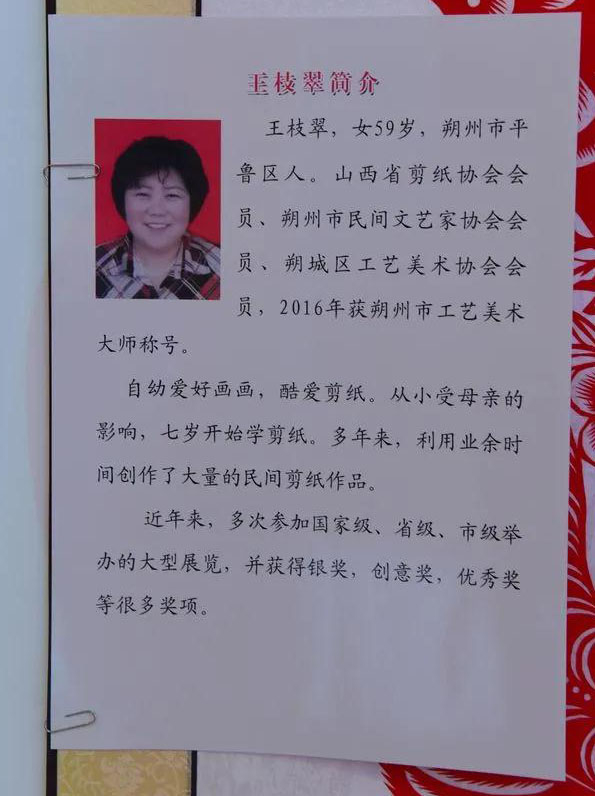 王枝翠简介
王枝翠，女59岁，朔州市平
鲁区人。山西省剪纸协会会
员、朔州市民间文艺家协会会
员、朔城区工艺美术协会会
员，2016年获朔州市工艺美术
大师称号。
自幼爱好画画，酷爱剪纸。从小受母亲的
影响，七岁开始学剪纸。多年来，利用业余时
间创作了大量的民间剪纸作品。
近年来，多次参加国家级、省级、市级举
办的大型展览，并获得银奖，创意奖，优秀奖
等很多奖项。